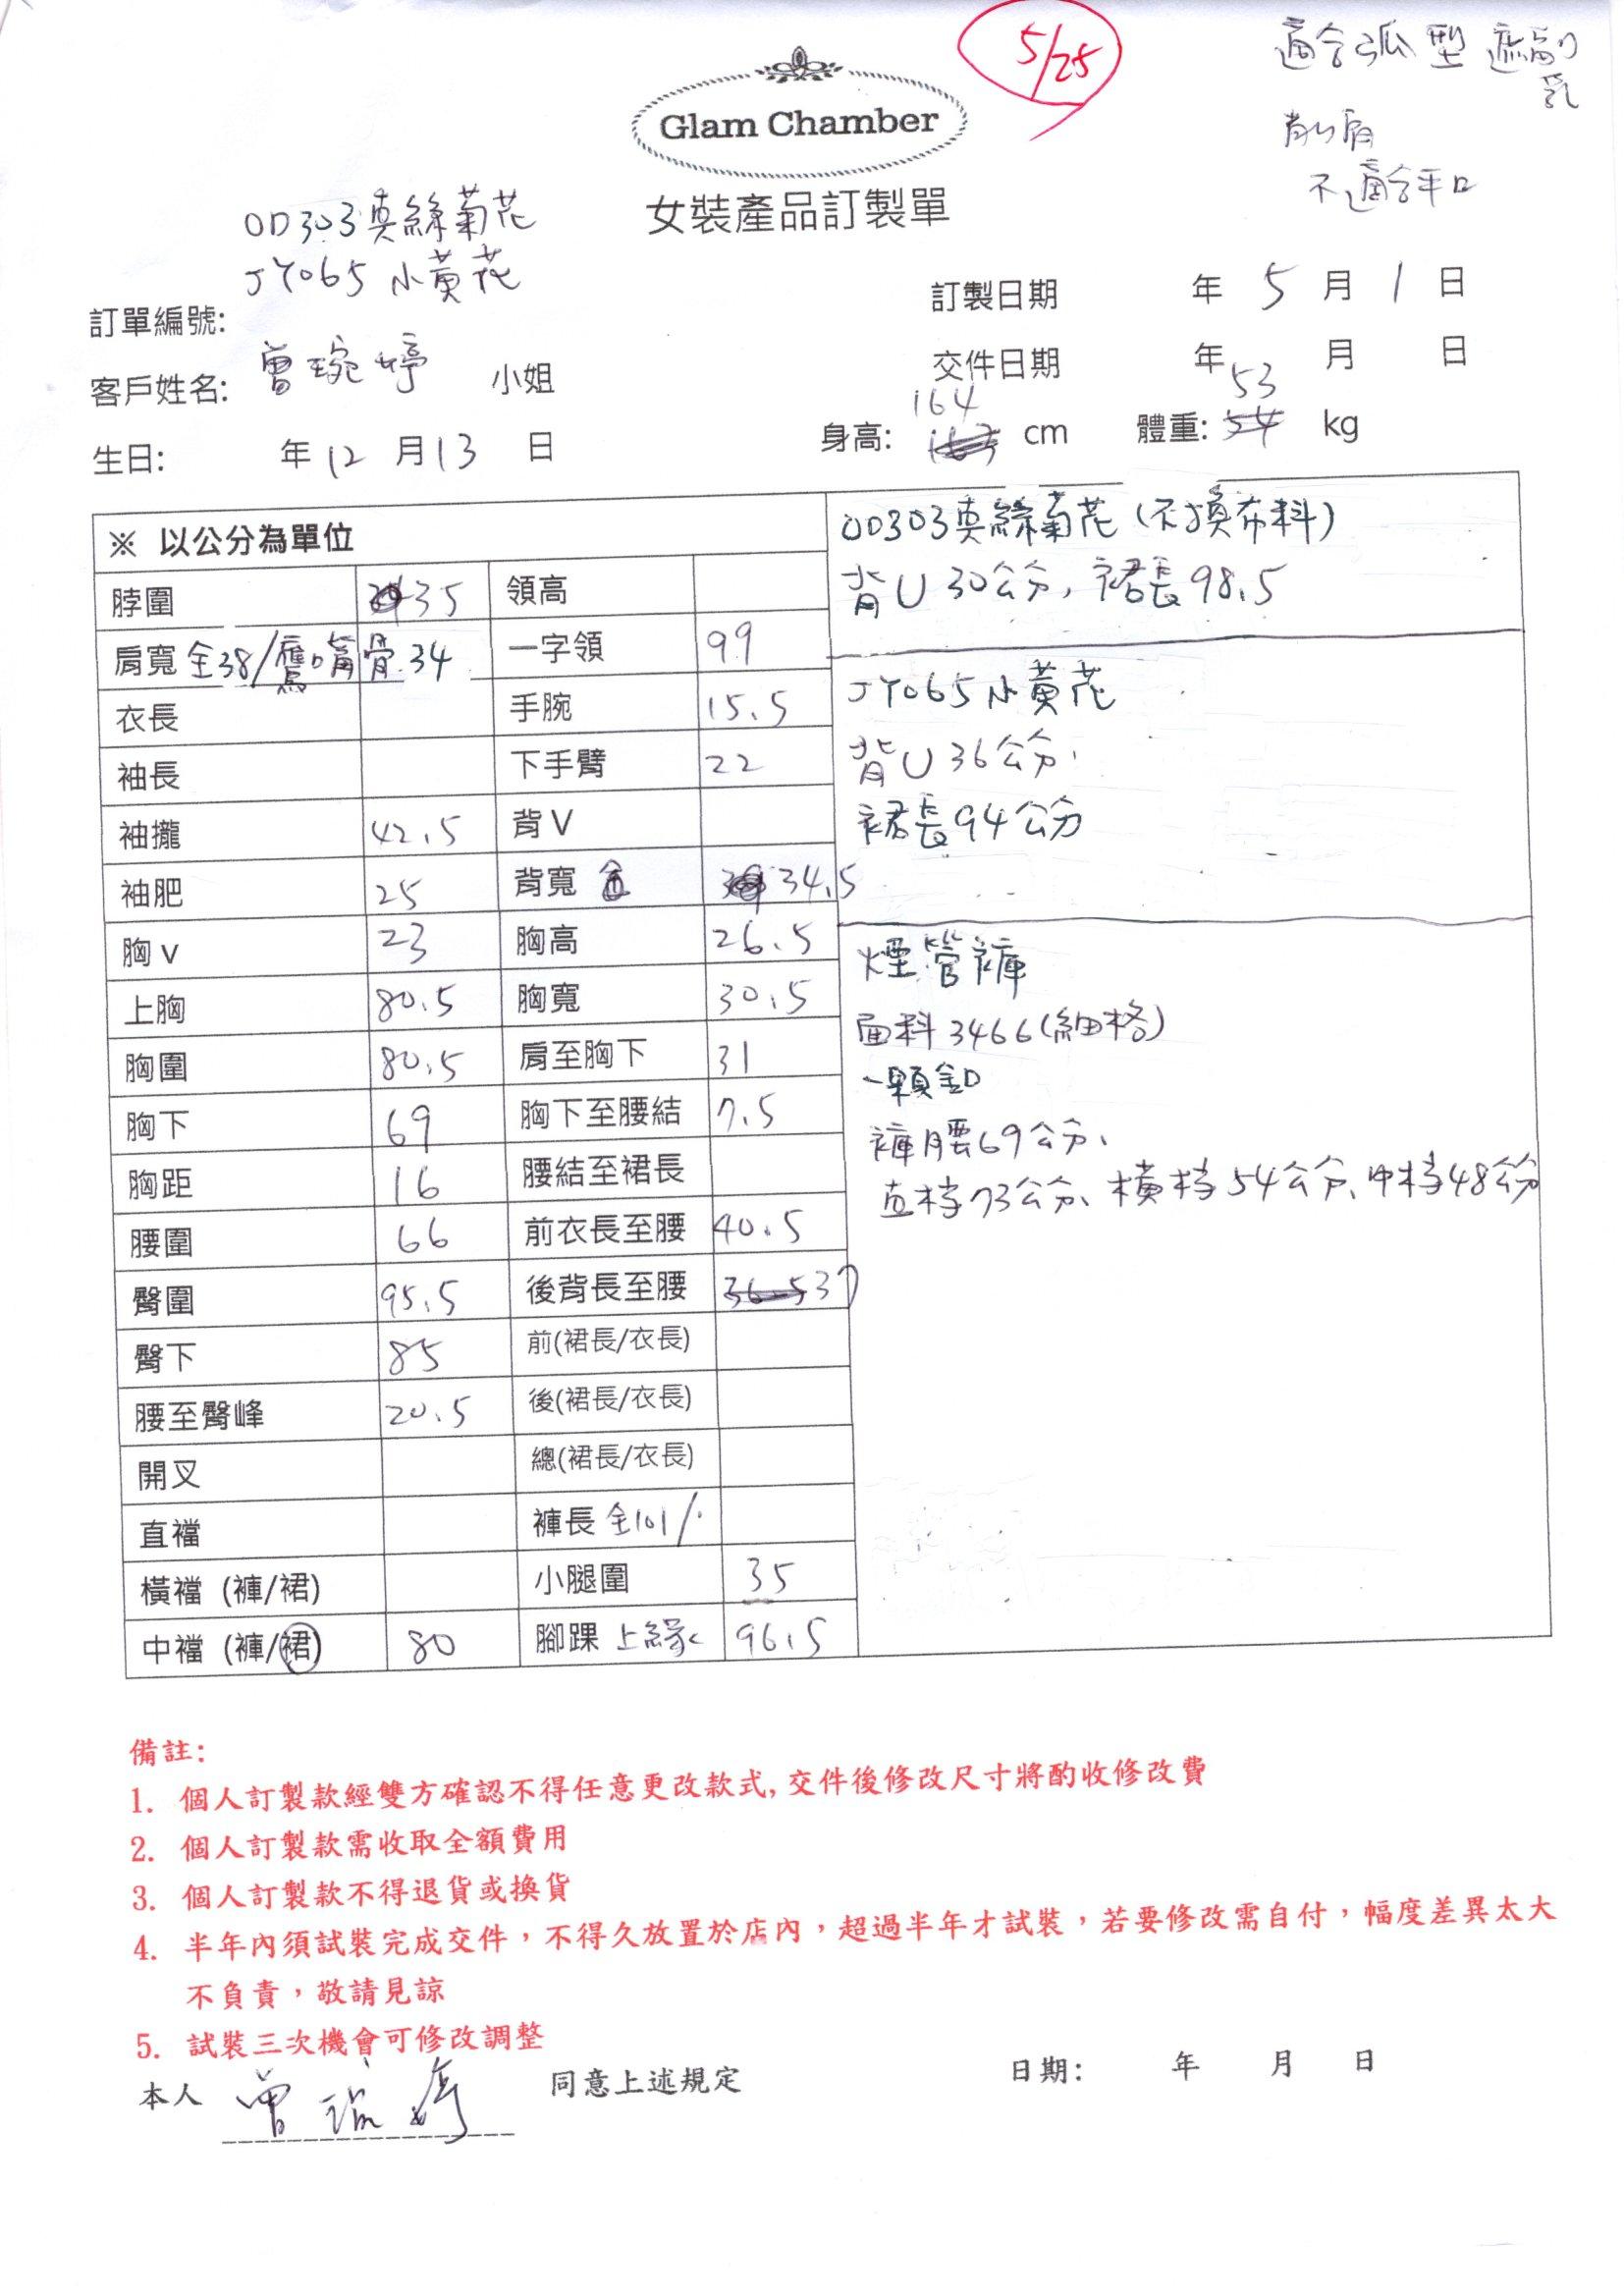 5/25
適合弧型 遮副乳
削肩
不適合平口
Glam Chamber
女裝產品訂製單
OD303真絲菊花
JY065小黃花
訂單編號:
訂製日期 年 5 月 1 日
客戶姓名: 曾琬婷 小姐
交件日期 年 月 日
生日: 年 12 月 13 日
身高: 164 cm 體重: 53 kg
※ 以公分為單位
脖圍 35 領高
肩寬 全38/鷹嘴骨34 一字領 99
衣長 手腕 15.5
袖長 下手臂 22
袖攏 42.5 背V
袖肥 25 背寬 全 34.5
胸v 23 胸高 26.5
上胸 80.5 胸寬 30.5
胸圍 80.5 肩至胸下 31
胸下 69 胸下至腰結 7.5
胸距 16 腰結至裙長
腰圍 66 前衣長至腰 40.5
臀圍 95.5 後背長至腰 36.5 37
臀下 85 前(裙長/衣長)
腰至臀峰 20.5 後(裙長/衣長)
開叉 總(裙長/衣長)
直襠 褲長 全101/
橫襠 (褲/裙) 小腿圍 35
中襠 (褲/裙) 80 腳踝 上緣 96.5
OD303真絲菊花(不換布料)
背U 30公分, 裙長98.5
JY065小黃花
背U 36公分.
裙長94公分
煙管褲
面料3466(細格)
一顆釦
褲腰69公分、
直档73公分、橫档54公分、中档48公分
備註:
1. 個人訂製款經雙方確認不得任意更改款式, 交件後修改尺寸將酌收修改費
2. 個人訂製款需收取全額費用
3. 個人訂製款不得退貨或換貨
4. 半年內須試裝完成交件，不得久放置於店內，超過半年才試裝，若要修改需自付，幅度差異太大
不負責，敬請見諒
5. 試裝三次機會可修改調整
本人 同意上述規定 日期: 年 月 日